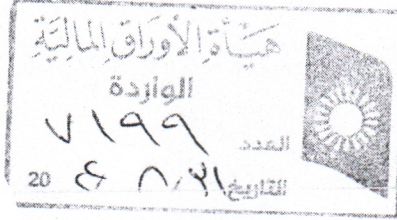 هَيْأَةِ الأَوْرَاقِ المَالِيَّةِ
الواردة
العدد ٧١٩٩
التاريخ 20